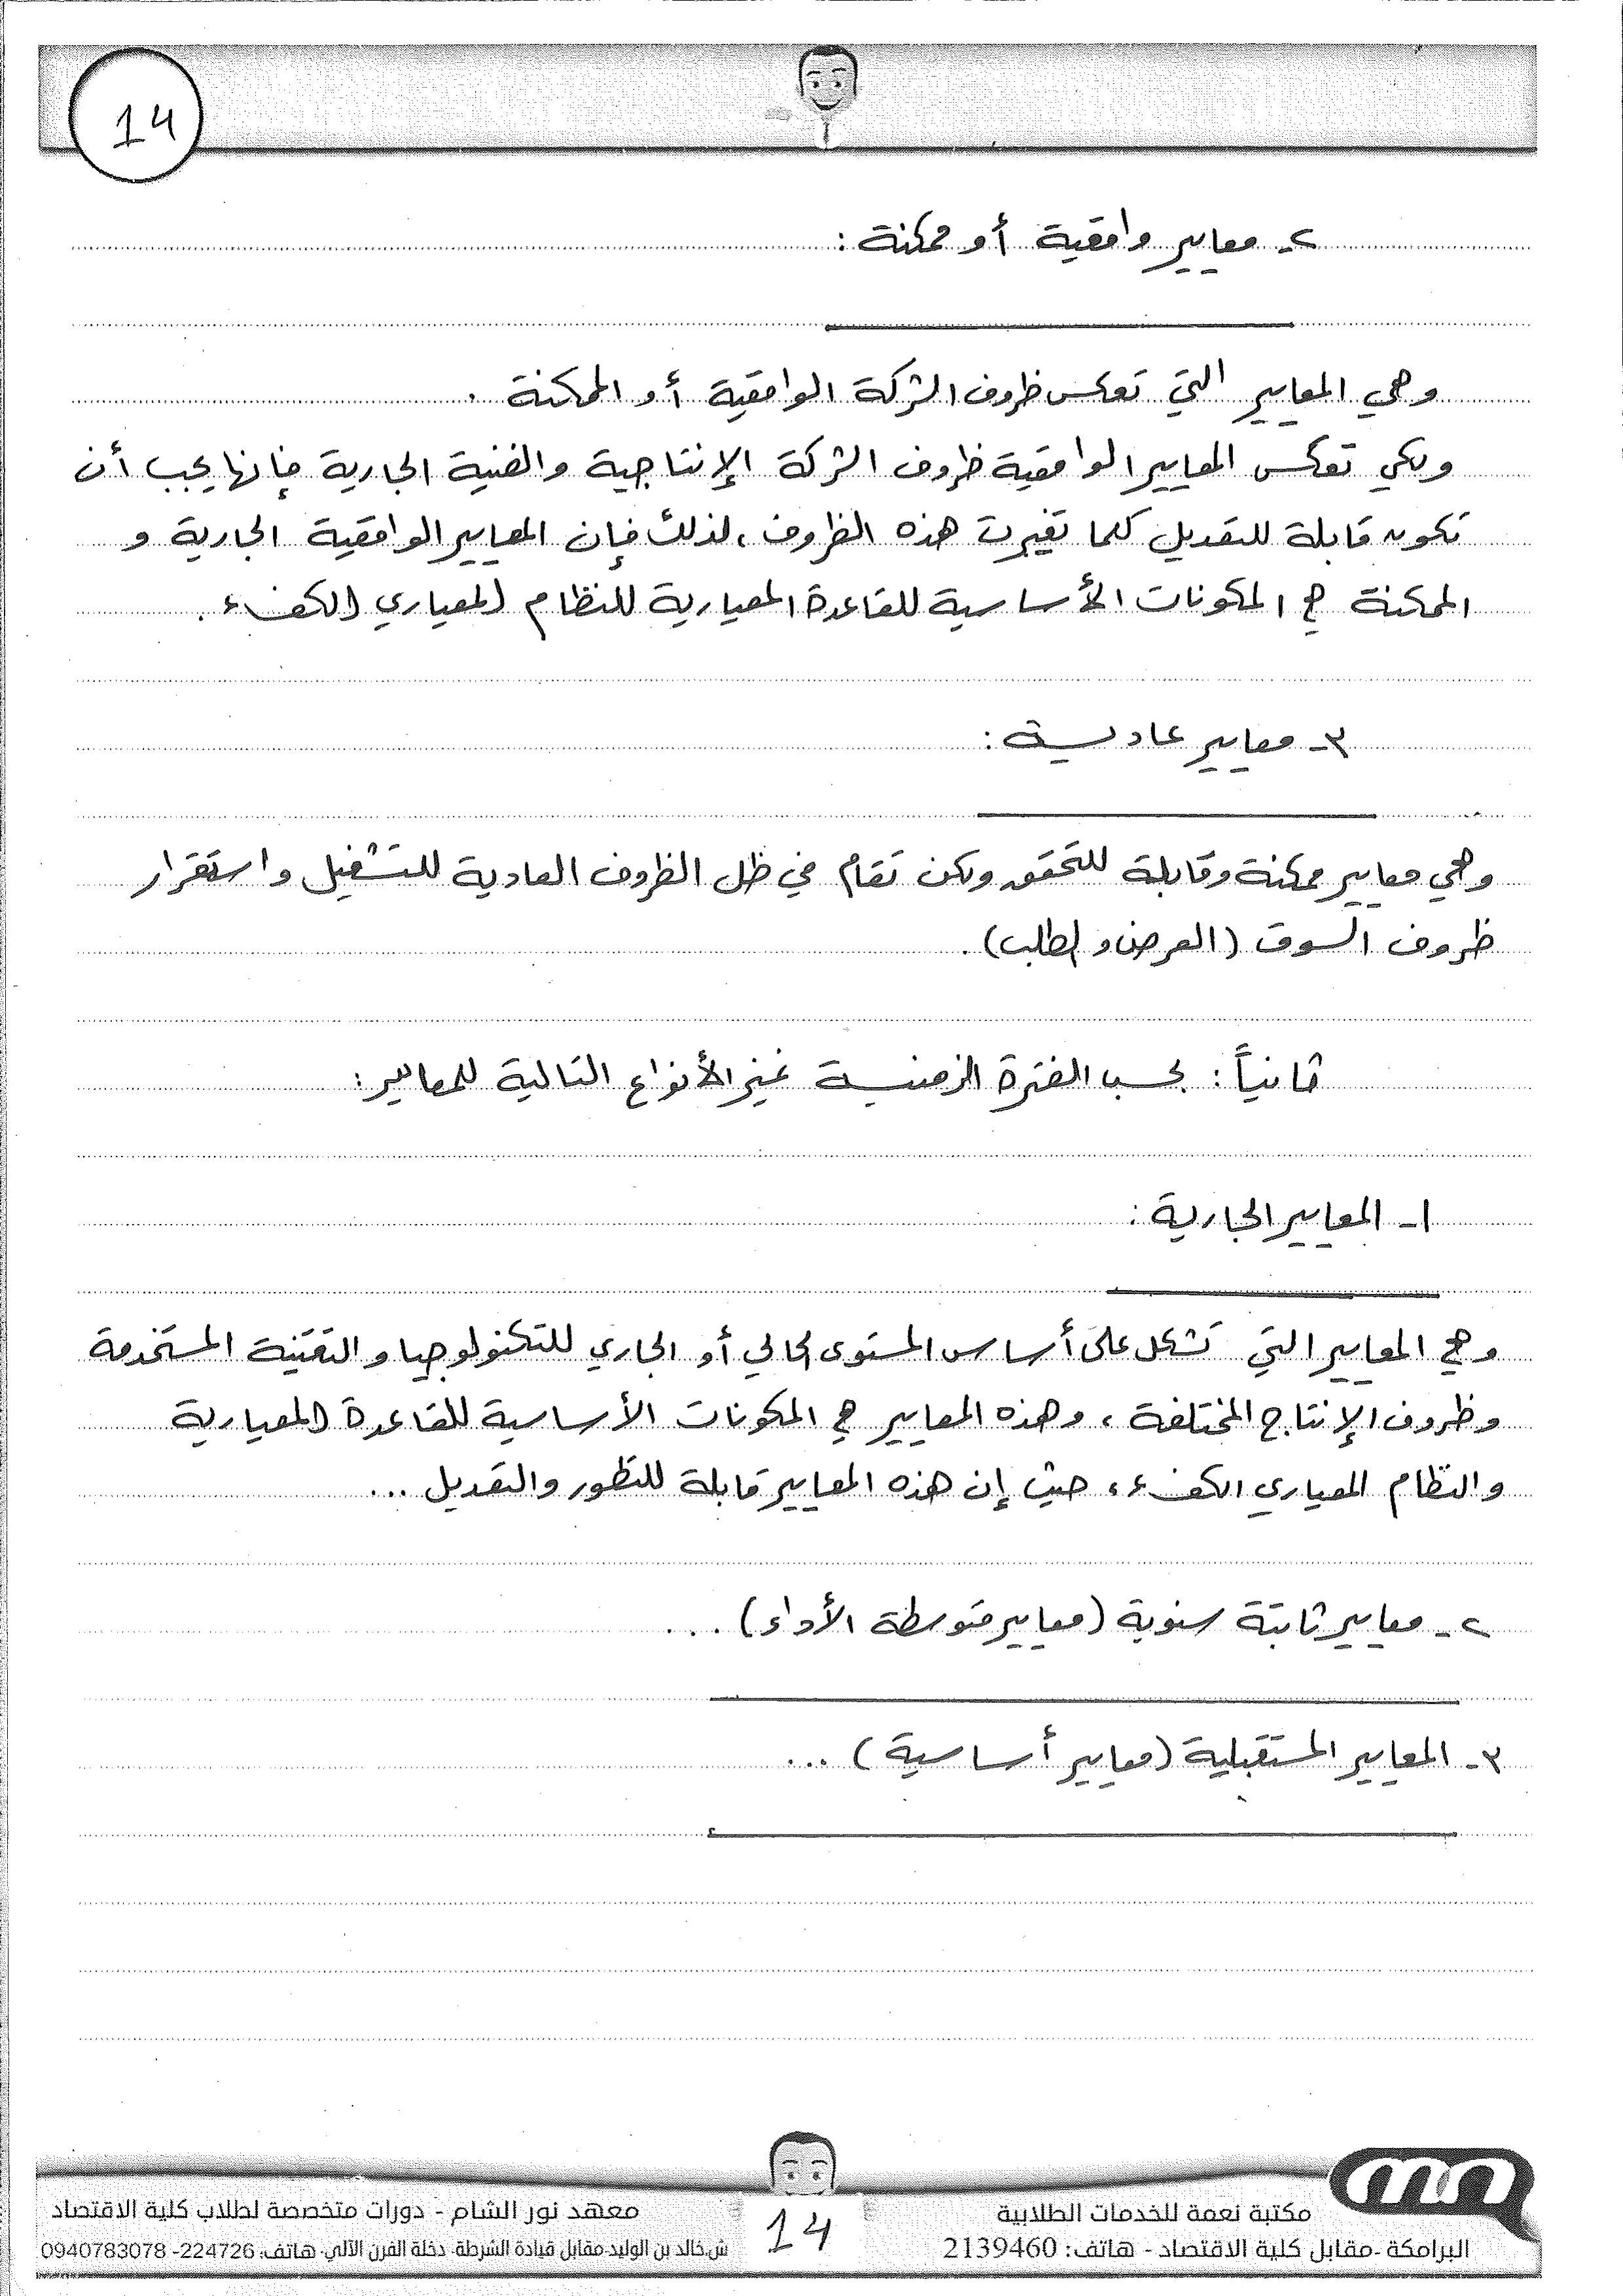 14
٢- معايير واقعية أو ممكنة :
وهي المعايير التي تعكس ظروف الشركة الواقعية أو الممكنة .
ولكي تعكس المعايير الواقعية ظروف الشركة الإنتاجية والفنية الجارية فإنها يجب أن
تكون قابلة للتعديل كلما تغيرت هذه الظروف ، لذلك فإن المعايير الواقعية الجارية و
الممكنة هي المكونات الأساسية للقاعدة المعيارية للنظام المعياري الكفء .
٣- معايير عادية :
وهي معايير ممكنة وقابلة للتحقق ولكن تقام في ظل الظروف العادية للتشغيل واستقرار
ظروف السوق (العرض والطلب) .
ثانياً : بحسب الفترة الزمنية نميز الأنواع التالية للمعايير :
١- المعايير الجارية :
وهي المعايير التي تشكل على أساس المستوى الحالي أو الجاري للتكنولوجيا والتقنية المستخدمة
وظروف الإنتاج المختلفة ، وهذه المعايير هي المكونات الأساسية للقاعدة المعيارية
والنظام المعياري الكفء ، حيث إن هذه المعايير قابلة للتطور والتعديل ...
٢- معايير ثابتة سنوية (معايير متوسطة الأداء) ...
٣- المعايير المستقبلية (معايير أساسية) ...
مكتبة نعمة للخدمات الطلابية
البرامكة -مقابل كلية الاقتصاد - هاتف: 2139460
14
معهد نور الشام - دورات متخصصة لطلاب كلية الاقتصاد
ش.خالد بن الوليد-مقابل قيادة الشرطة- دخلة الفرن الآلي- هاتف: 224726- 0940783078